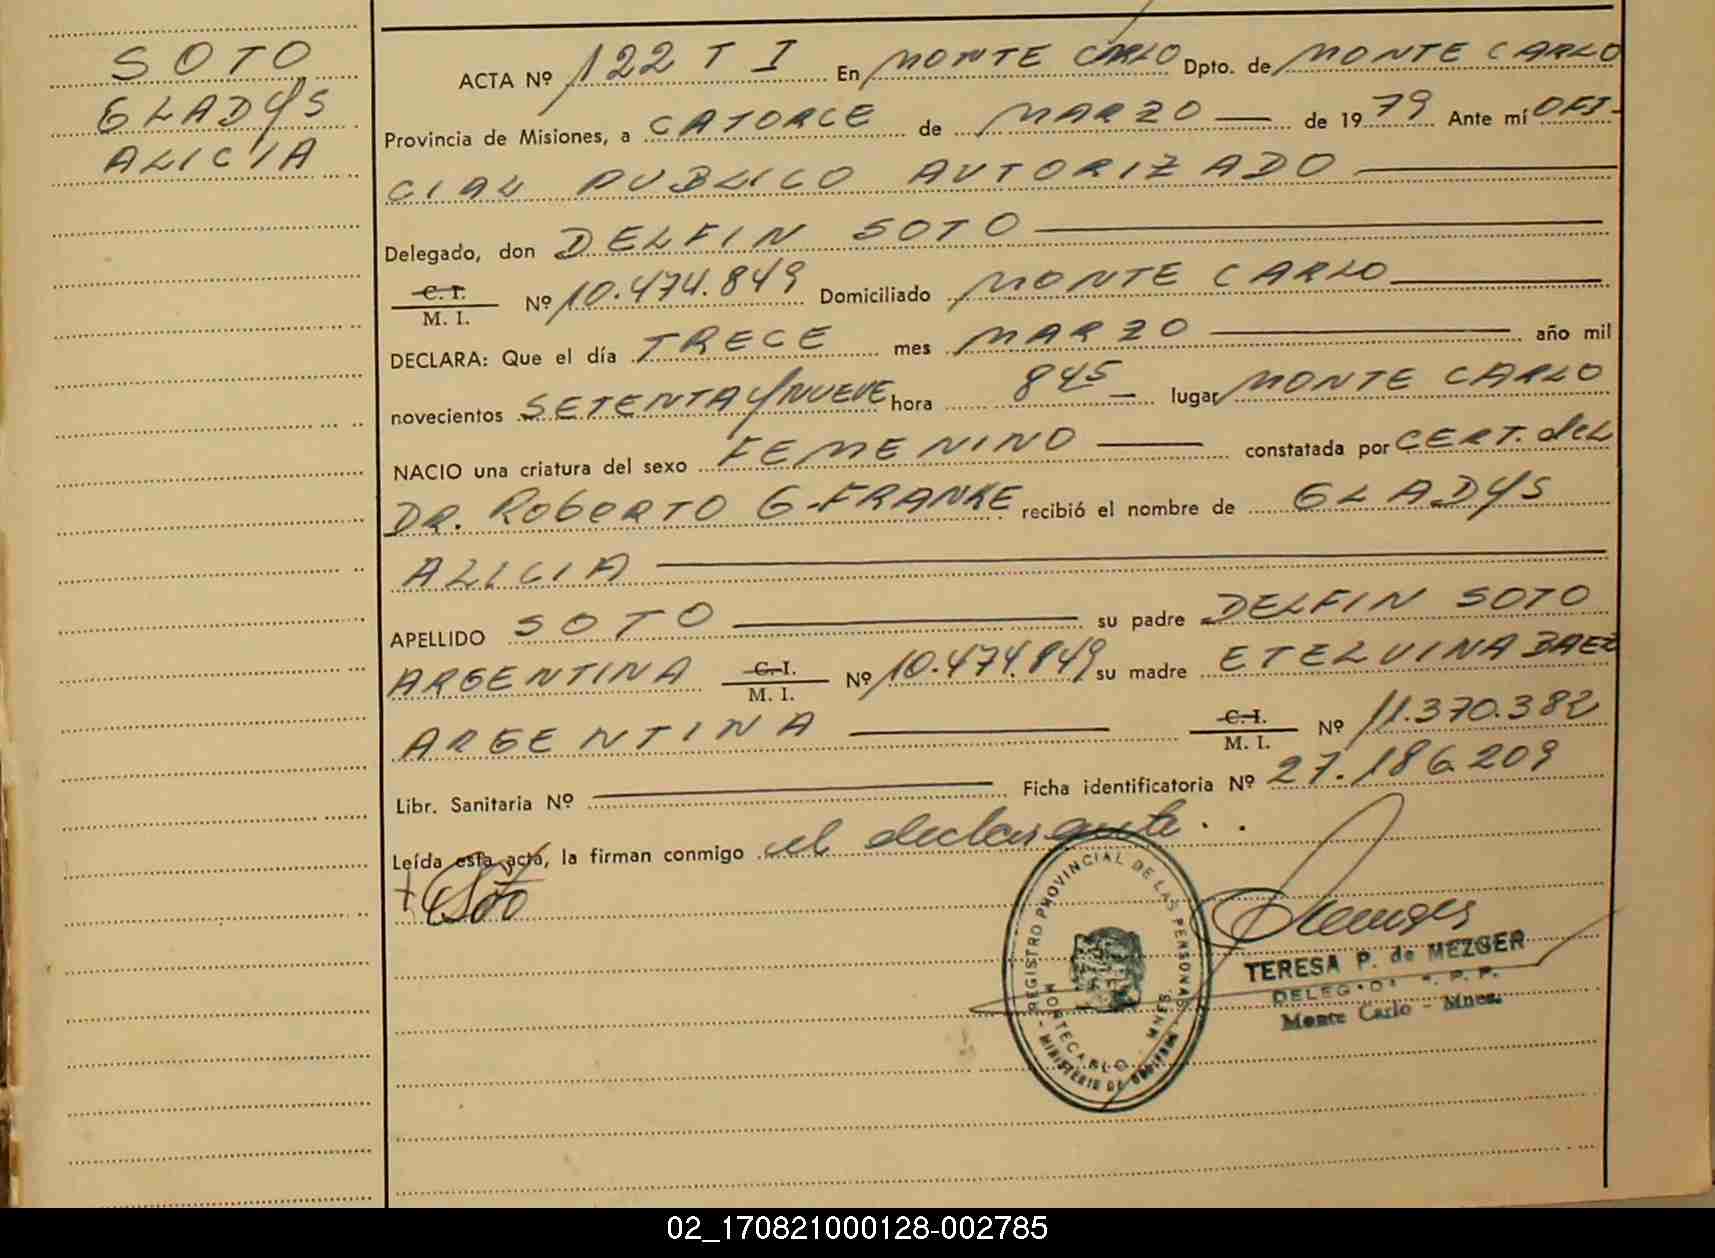 SOTO
GLADYS
ALICIA
ACTA Nº 122 T I En MONTE CARLO Dpto. de MONTE CARLO
Provincia de Misiones, a CATORCE de MARZO de 1979 Ante mí OFI-
CIAL PUBLICO AUTORIZADO
Delegado, don DELFIN SOTO
C. I. / M. I. Nº 10.474.849 Domiciliado MONTE CARLO
DECLARA: Que el día TRECE mes MARZO año mil
novecientos SETENTA y NUEVE hora 845 lugar MONTE CARLO
NACIO una criatura del sexo FEMENINO constatada por CERT. del
DR. ROBERTO G. FRANKE recibió el nombre de GLADYS
ALICIA
APELLIDO SOTO su padre DELFIN SOTO
ARGENTINA C. I. / M. I. Nº 10.474.849 su madre ETELVINA BAEZ
ARGENTINA C. I. / M. I. Nº 11.370.382
Libr. Sanitaria Nº Ficha identificatoria Nº 27.186.209
Leída esta acta, la firman conmigo el declarante..
Soto
REGISTRO PROVINCIAL DE LAS PERSONAS
MONTECARLO MNES.
MINISTERIO DE GOBIERNO
TERESA P. de MEZGER
DELEGADA R. P. P.
Monte Carlo - Mnes.
02_170821000128-002785